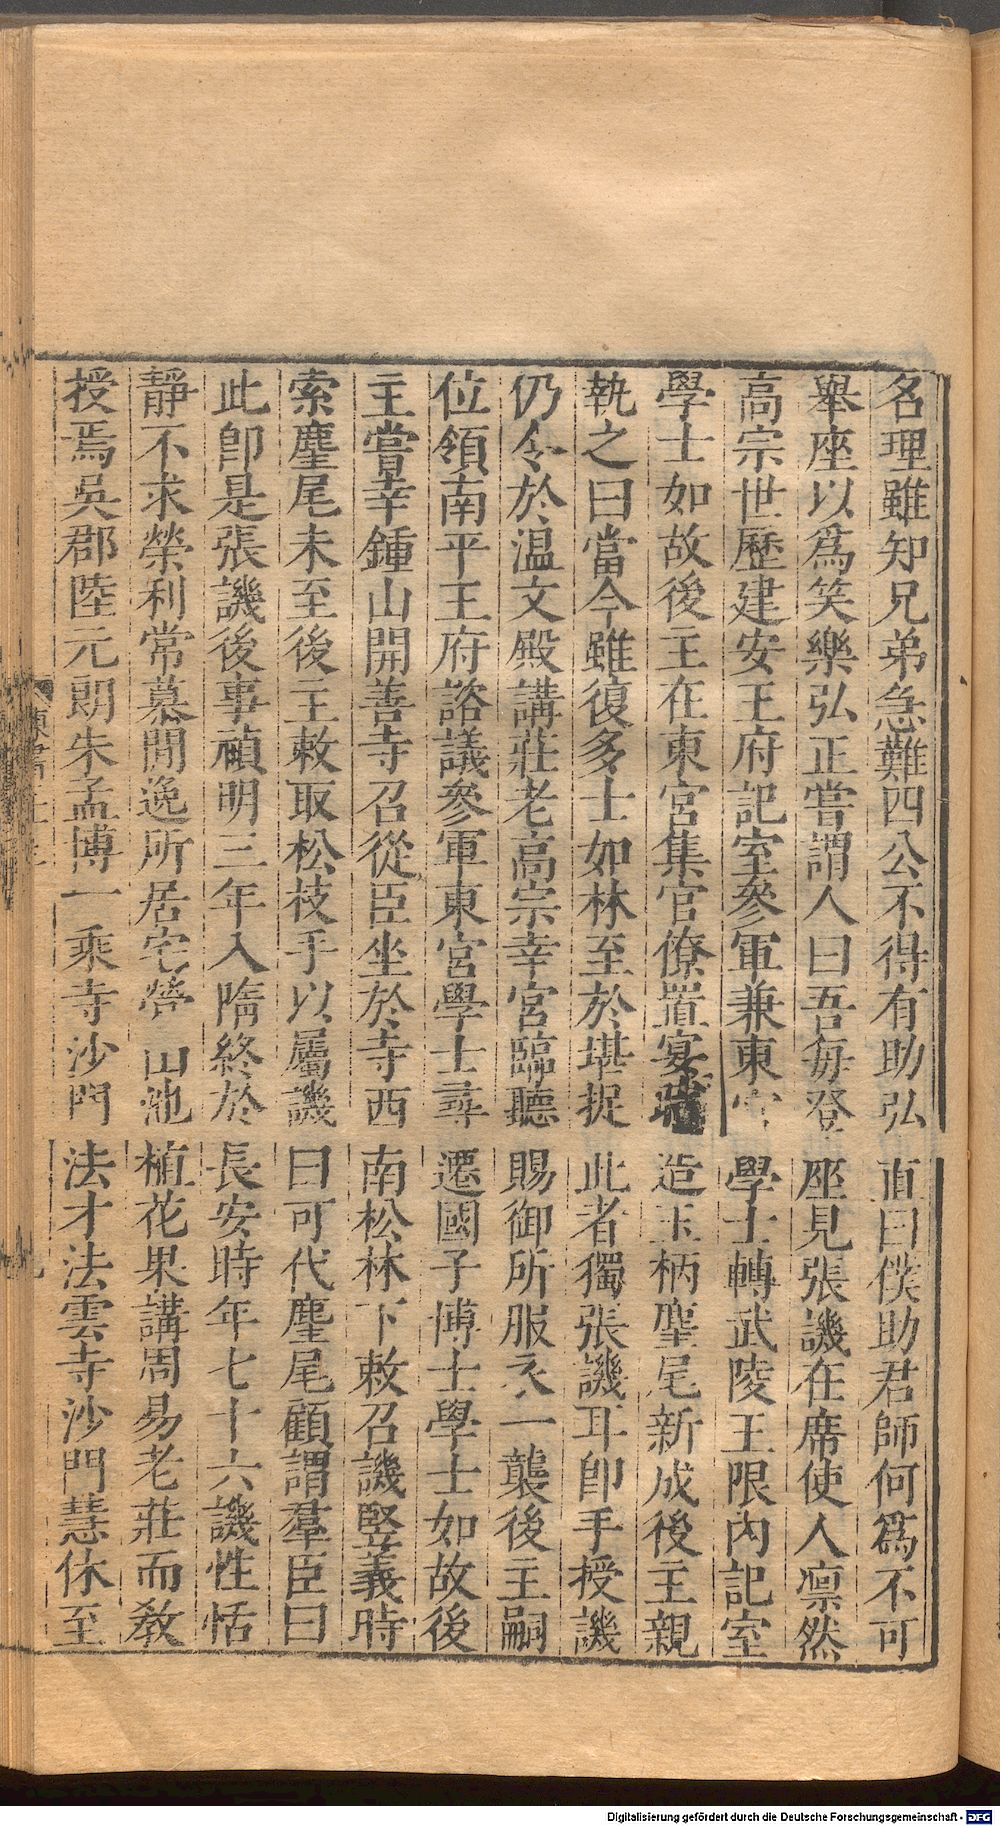 名理雖知兄弟急難四公不得有助弘直曰僕助君師何爲不可
舉座以爲笑樂弘正嘗謂人曰吾每登座見張譏在席使人凛然
高宗世歷建安王府記室參軍兼東宮學士轉武陵王限內記室
學士如故後主在東宮集官僚置宴時造玉柄麈尾新成後主親
執之曰當今雖復多士如林至於堪捉此者獨張譏耳卽手授譏
仍令於温文殿講莊老高宗幸宮臨聽賜御所服衣一襲後主嗣
位領南平王府諮議參軍東宮學士尋遷國子博士學士如故後
主嘗幸鍾山開善寺召從臣坐於寺西南松林下敕召譏竪義時
索麈尾未至後主敕取松枝手以屬譏曰可代麈尾顧謂羣臣曰
此卽是張譏後事禎明三年入隋終於長安時年七十六譏性恬
靜不求榮利常慕閒逸所居宅營山池植花果講周易老莊而敎
授焉吳郡陸元朗朱孟博一乘寺沙門法才法雲寺沙門慧休至
Digitalisierung gefördert durch die Deutsche Forschungsgemeinschaft - DFG